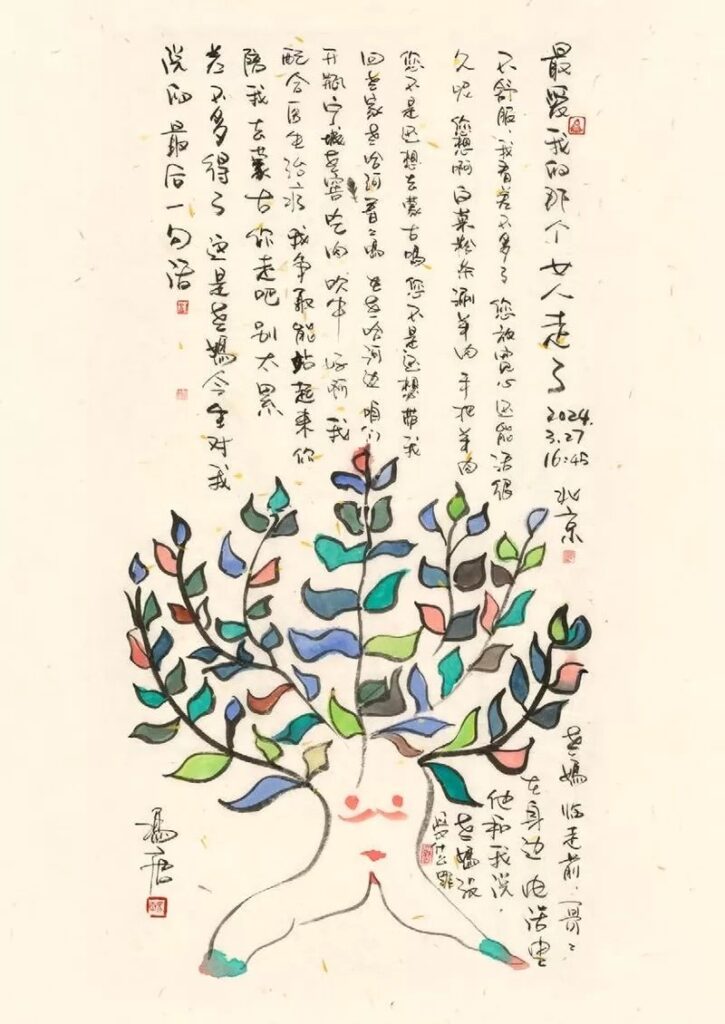 最爱我的那个女人走了
2024.
3.27
16:45
北京
不舒服、我看差不多了 您放宽心 还能活很
久呢 您想啊 白菜粉条涮羊肉 手把羊肉
您不是还想去蒙古吗 您不是还想带我
回老家老哈河看看吗 在老哈河边 咱们
开瓶宁城老窖 吃肉 吹牛 好啊 我
配合医生治疗 我争取能站起来 你
陪我去蒙古 你走吧 别太累
差不多得了 这是老妈今生对我
说的最后一句话
老妈临走前、哥哥
在身边 电话里
他和我说，
老妈
冯唐